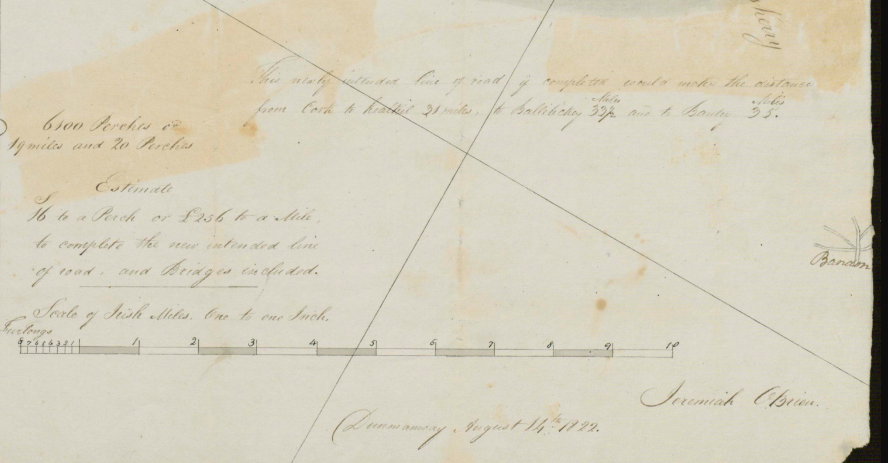 This newly intended line of road if completed would make the distance
from Cork to 31 miles. to 33½ Miles and to Bantry 35. Miles
6100 Perches or
19 miles and 20 Perches
Estimate
16 S to a Perch or £256 to a Mile,
to complete the new intended line
of road. and Bridges included.
Scale of Irish Miles. One to one Inch.
Furlongs
8 7 6 5 4 3 2 1 1 2 3 4 5 6 7 8 9 10
Bandon
Jeremiah O'Brien.
Dunmanway August 14th 1822.